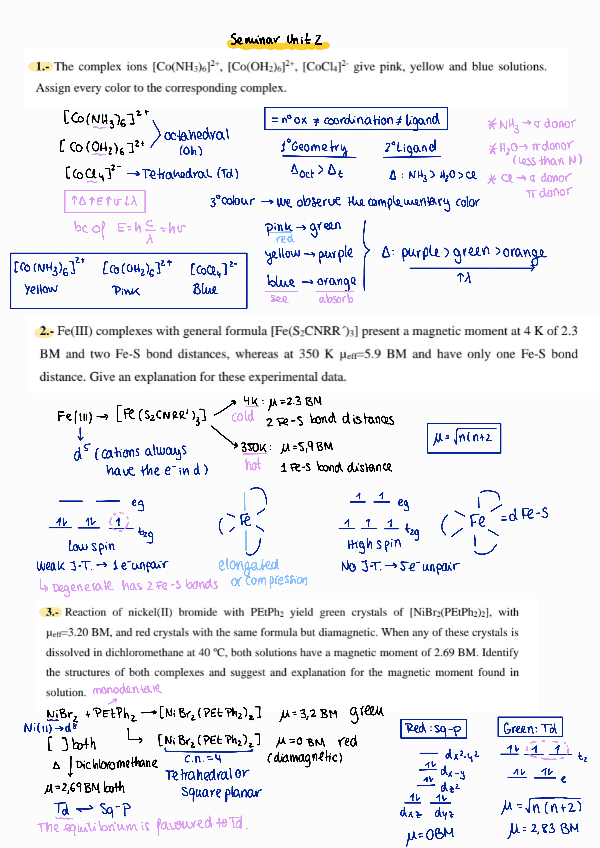 Seminar Unit 2
1.- The complex ions [Co(NH₃)₆]²⁺, [Co(OH₂)₆]²⁺, [CoCl₄]²⁻ give pink, yellow and blue solutions.
Assign every color to the corresponding complex.
[Co(NH₃)₆]²⁺
[Co(OH₂)₆]²⁺
octahedral
(Oh)
[CoCl₄]²⁻ → Tetrahedral (Td)
= nº ox ≠ coordination ≠ ligand
1º Geometry
Δoct > Δt
2º Ligand
Δ : NH₃ > H₂O > Cl
* NH₃ → σ donor
* H₂O → π donor
(less than N)
* Cl → σ donor
π donor
↑Δ ↑E ↑ν ↓λ
bc of E = h c/λ = hν
3º colour → we observe the complementary color
pink → green
red
yellow → purple
blue → orange
see absorb
Δ: purple > green > orange
↑λ
[Co(NH₃)₆]²⁺ [Co(OH₂)₆]²⁺ [CoCl₄]²⁻
Yellow Pink Blue
2.- Fe(III) complexes with general formula [Fe(S₂CNRR´)₃] present a magnetic moment at 4 K of 2.3
BM and two Fe-S bond distances, whereas at 350 K μeff=5.9 BM and have only one Fe-S bond
distance. Give an explanation for these experimental data.
Fe(III) → [Fe(S₂CNRR')₃]
4K : μ = 2.3 BM
cold 2 Fe-S bond distances
350K : μ = 5,9 BM
hot 1 Fe-S bond distance
d⁵ (cations always
have the e⁻ in d)
μ = √n(n+2
eg
t2g
Low spin
Weak J-T. → 1 e⁻ unpair
↳ Degenerate has 2 Fe-S bonds
Fe
elongated
or compression
eg
t2g
High spin
No J-T. → 5 e⁻ unpair
Fe = d Fe-S
3.- Reaction of nickel(II) bromide with PEtPh₂ yield green crystals of [NiBr₂(PEtPh₂)₂], with
μeff=3.20 BM, and red crystals with the same formula but diamagnetic. When any of these crystals is
dissolved in dichloromethane at 40 ºC, both solutions have a magnetic moment of 2.69 BM. Identify
the structures of both complexes and suggest and explanation for the magnetic moment found in
solution.
monodentate
NiBr₂ + PEtPh₂ → [NiBr₂(PEtPh₂)₂] μ = 3,2 BM green
Ni(II) → d⁸
[NiBr₂(PEtPh₂)₂] μ = 0 BM red
(diamagnetic)
c.n. = 4
Tetrahedral or
square planar
[ ] both
Δ ↓ Dichloromethane
μ = 2,69 BM both
Td ⇌ Sq-p
The equilibrium is favoured to Td.
Red : sq-p
dx²-y²
dx-y
dz²
dxz dyz
μ = 0 BM
Green : Td
t2
e
μ = √n(n+2)
μ = 2,83 BM